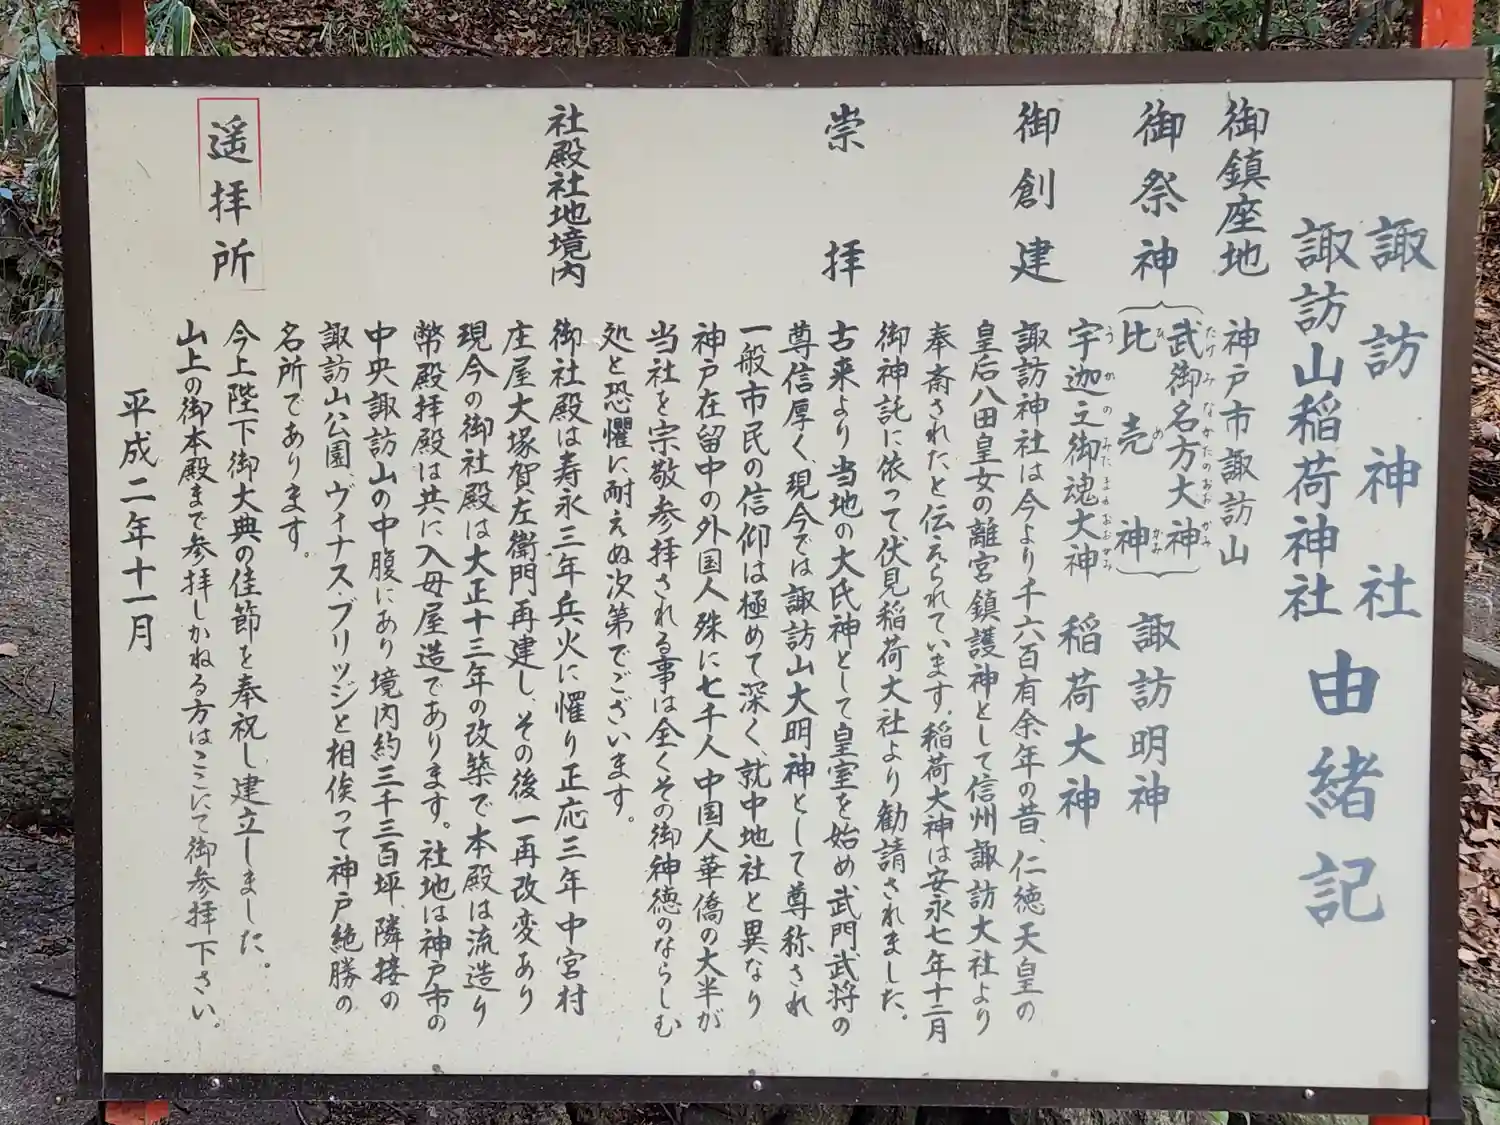 諏訪神社
諏訪山稲荷神社
由緒記
御鎮座地
神戸市諏訪山
御祭神
武御名方大神
たけみなかたのおおがみ
比売神
ひめかみ
諏訪明神
宇迦之御魂大神
うかのみたまのおおかみ
稲荷大神
御創建
諏訪神社は今より千六百有余年の昔、仁徳天皇の
皇后八田皇女の離宮鎮護神として信州諏訪大社より
奉斎されたと伝えられています。稲荷大神は安永七年十二月
御神託に依って伏見稲荷大社より勧請されました。
崇拝
古来より当地の大氏神として皇室を始め武門武将の
尊信厚く、現今では諏訪山大明神として尊称され
一般市民の信仰は極めて深く、就中地社と異なり
神戸在留中の外国人殊に七千人中国人華僑の大半が
当社を宗敬参拝される事は全くその御神徳のならしむ
処と恐懼に耐えぬ次第でございます。
社殿社地境内
御社殿は寿永三年兵火に罹り正応三年中宮村
庄屋大塚賀左衛門再建し、その後一再改変あり
現今の御社殿は大正十三年の改築で本殿は流造り
幣殿拝殿は共に入母屋造であります。社地は神戸市の
中央諏訪山の中腹にあり境内約三千三百坪、隣接の
諏訪山公園、ヴィナス・ブリッジと相俟って神戸絶勝の
名所であります。
遥拝所
今上陛下御大典の佳節を奉祝し建立しました。
山上の御本殿まで参拝しかねる方はここにて御参拝下さい。
平成二年十一月